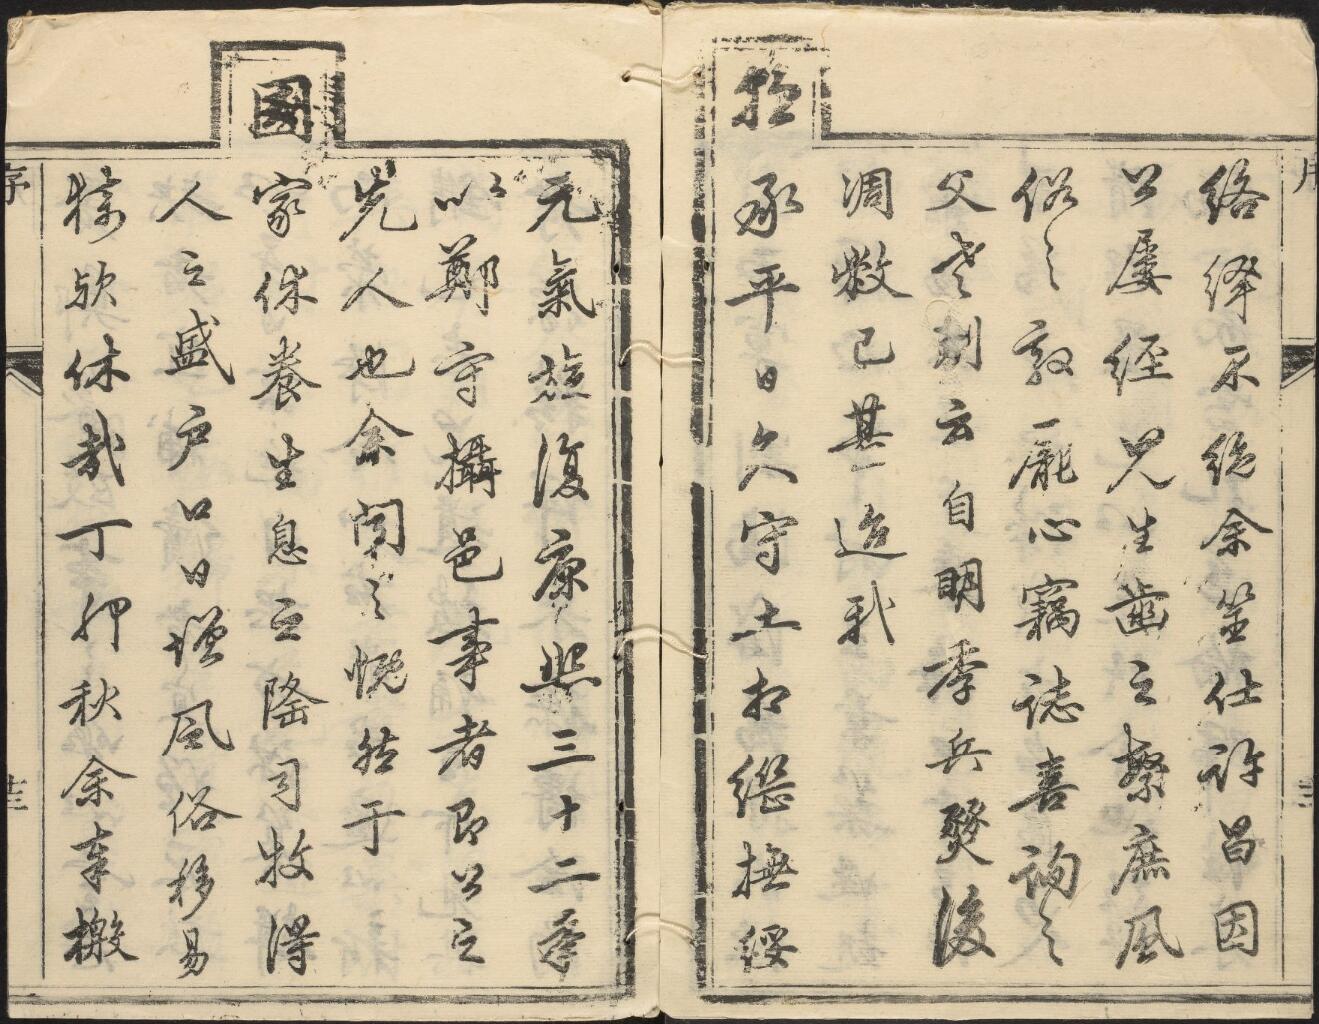 絡繹不絕余筮仕許昌因
公屢經見生齒之繁庶風
俗之敦龐心竊誌喜詢之
父老則云自明季兵燹後
凋敝已甚迨我
朝承平日久守土相繼撫綏
元氣旋復康熙三十二年
以鄭守攝邑事者即公之
先人也余聞之慨然于
國家休養生息之隆司牧得
人之盛戶口日增風俗移易
猗歟休哉丁卯秋余奉檄
序